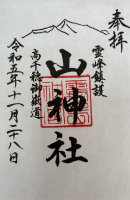 奉拝
霊峰鎮護
山神社
高千穂御嶽道
令和五年十一月二十八日